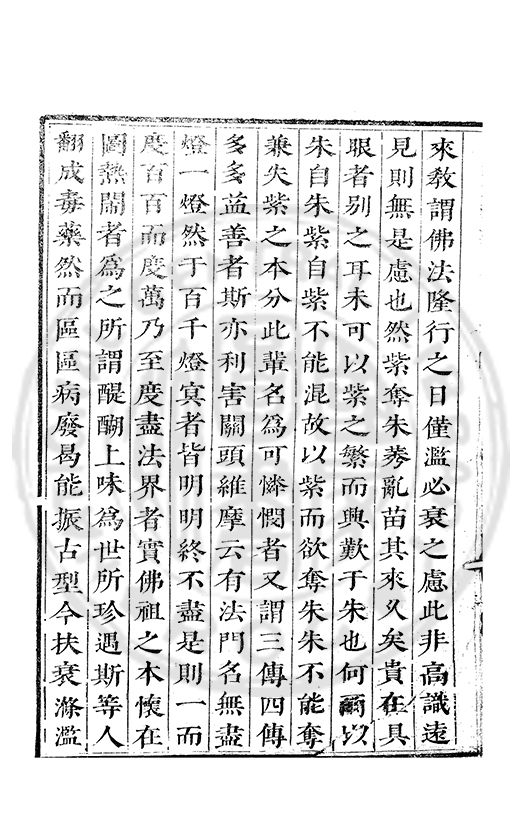 來教謂佛法隆行之日僅濫必衰之慮此非高識遠
見則無是慮也然紫奪朱莠亂苗其來久矣貴在具
眼者别之耳未可以紫之繁而興歎于朱也何爾以
朱自朱紫自紫不能混故以紫而欲奪朱朱不能奪
兼失紫之本分此輩名爲可憐憫者又謂三傳四傳
多多益善者斯亦利害關頭維摩云有法門名無盡
燈一燈然于百千燈冥者皆明明終不盡是則一而
度百百而度萬乃至度盡法界者實佛祖之本懷在
圖熱鬧者爲之所謂醍醐上味爲世所珍遇斯等人
翻成毒藥然而區區病廢曷能振古型今扶衰滌濫